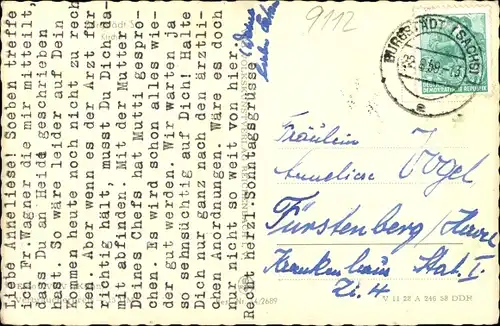 Liebe Anneliese! Soeben treffe
ich Fr. Wagner die mir mitteilt,
dass Du an Heidé geschrieben
hast. So wäre leider auf Dein
Kommen heute noch nicht zu rech
nen. Aber wenn es der Arzt für
richtig hält, musst Du Dich da-
mit abfinden. Mit der Mutter
Deines Chefs hat Mutti gespro-
chen. Es wird schon alles wie-
der gut werden. Wir warten ja
so sehnsüchtig auf Dich! Halte
Dich nur ganz nach den ärztli-
chen Anordnungen. Wäre es doch
nur nicht so weit von hier.
Recht herzl. Sonntagsgrüsse
9112
BURGSTÄDT (SACHS)
Fräulein
Anneliese Vogel
Fürstenberg/Havel
Krankenhaus Stat. I
Zi. 4
V 11 28 A 246 58 DDR